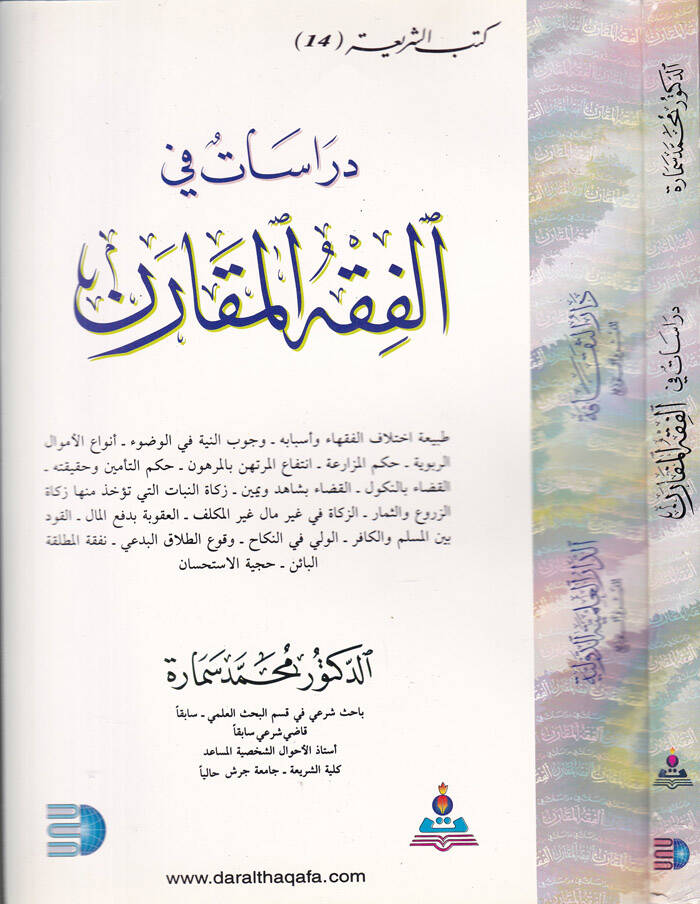 كتب الشريعة (14)
دراسات في
الفقه المقارن
طبيعة اختلاف الفقهاء وأسبابه ـ وجوب النية في الوضوء ـ أنواع الأموال
الربوية ـ حكم المزارعة ـ انتفاع المرتهن بالمرهون ـ حكم التأمين وحقيقته ـ
القضاء بالنكول ـ القضاء بشاهد ويمين ـ زكاة النبات التي تؤخذ منها زكاة
الزروع والثمار ـ الزكاة في غير مال غير المكلف ـ العقوبة بدفع المال ـ القود
بين المسلم والكافر ـ الولي في النكاح ـ وقوع الطلاق البدعي ـ نفقة المطلقة
البائن ـ حجية الاستحسان
الدكتور محمد سمارة
باحث شرعي في قسم البحث العلمي ـ سابقاً
قاضي شرعي سابقاً
أستاذ الأحوال الشخصية المساعد
كلية الشريعة ـ جامعة جرش حالياً
www.daralthaqafa.com
دار الثقافة
للنشر والتوزيع
الدار العلمية الدولية
للنشر والتوزيع
الدكتور محمد سمارة
دراسات في الفقه المقارن